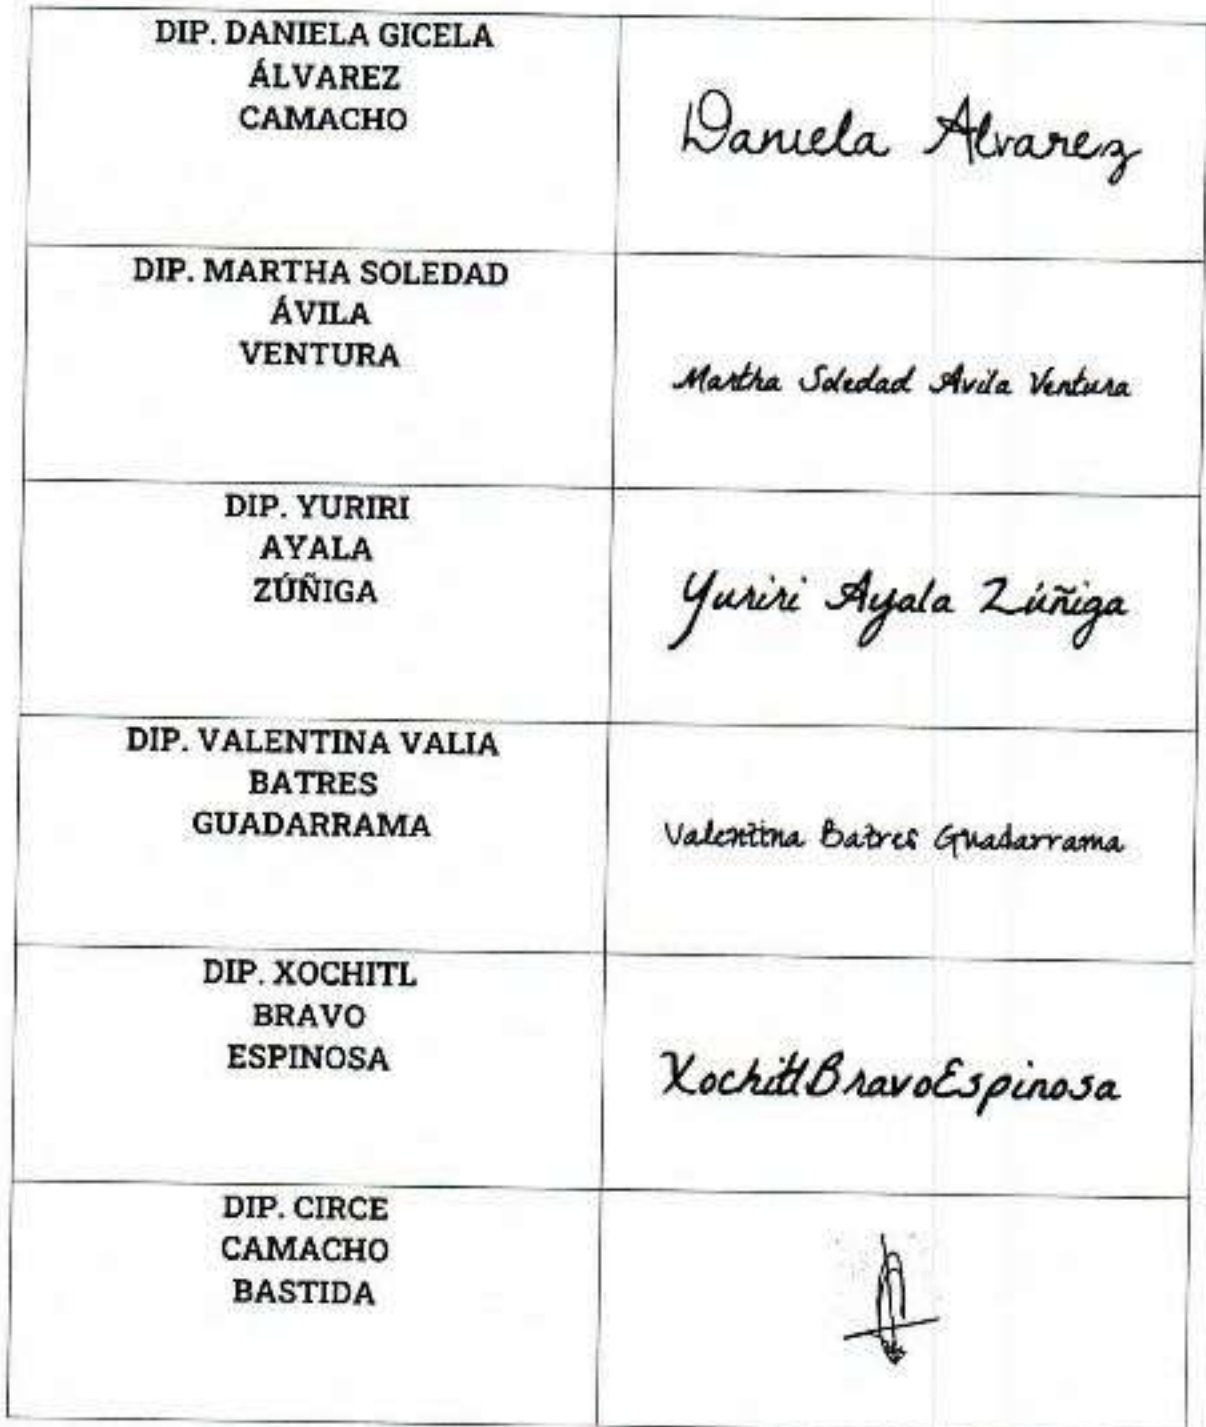 DIP. DANIELA GICELA
ÁLVAREZ
CAMACHO
Daniela Alvarez
DIP. MARTHA SOLEDAD
ÁVILA
VENTURA
Martha Soledad Avila Ventura
DIP. YURIRI
AYALA
ZÚÑIGA
Yuriri Ayala Zúñiga
DIP. VALENTINA VALIA
BATRES
GUADARRAMA
Valentina Batres Guadarrama
DIP. XOCHITL
BRAVO
ESPINOSA
XochitlBravoEspinosa
DIP. CIRCE
CAMACHO
BASTIDA